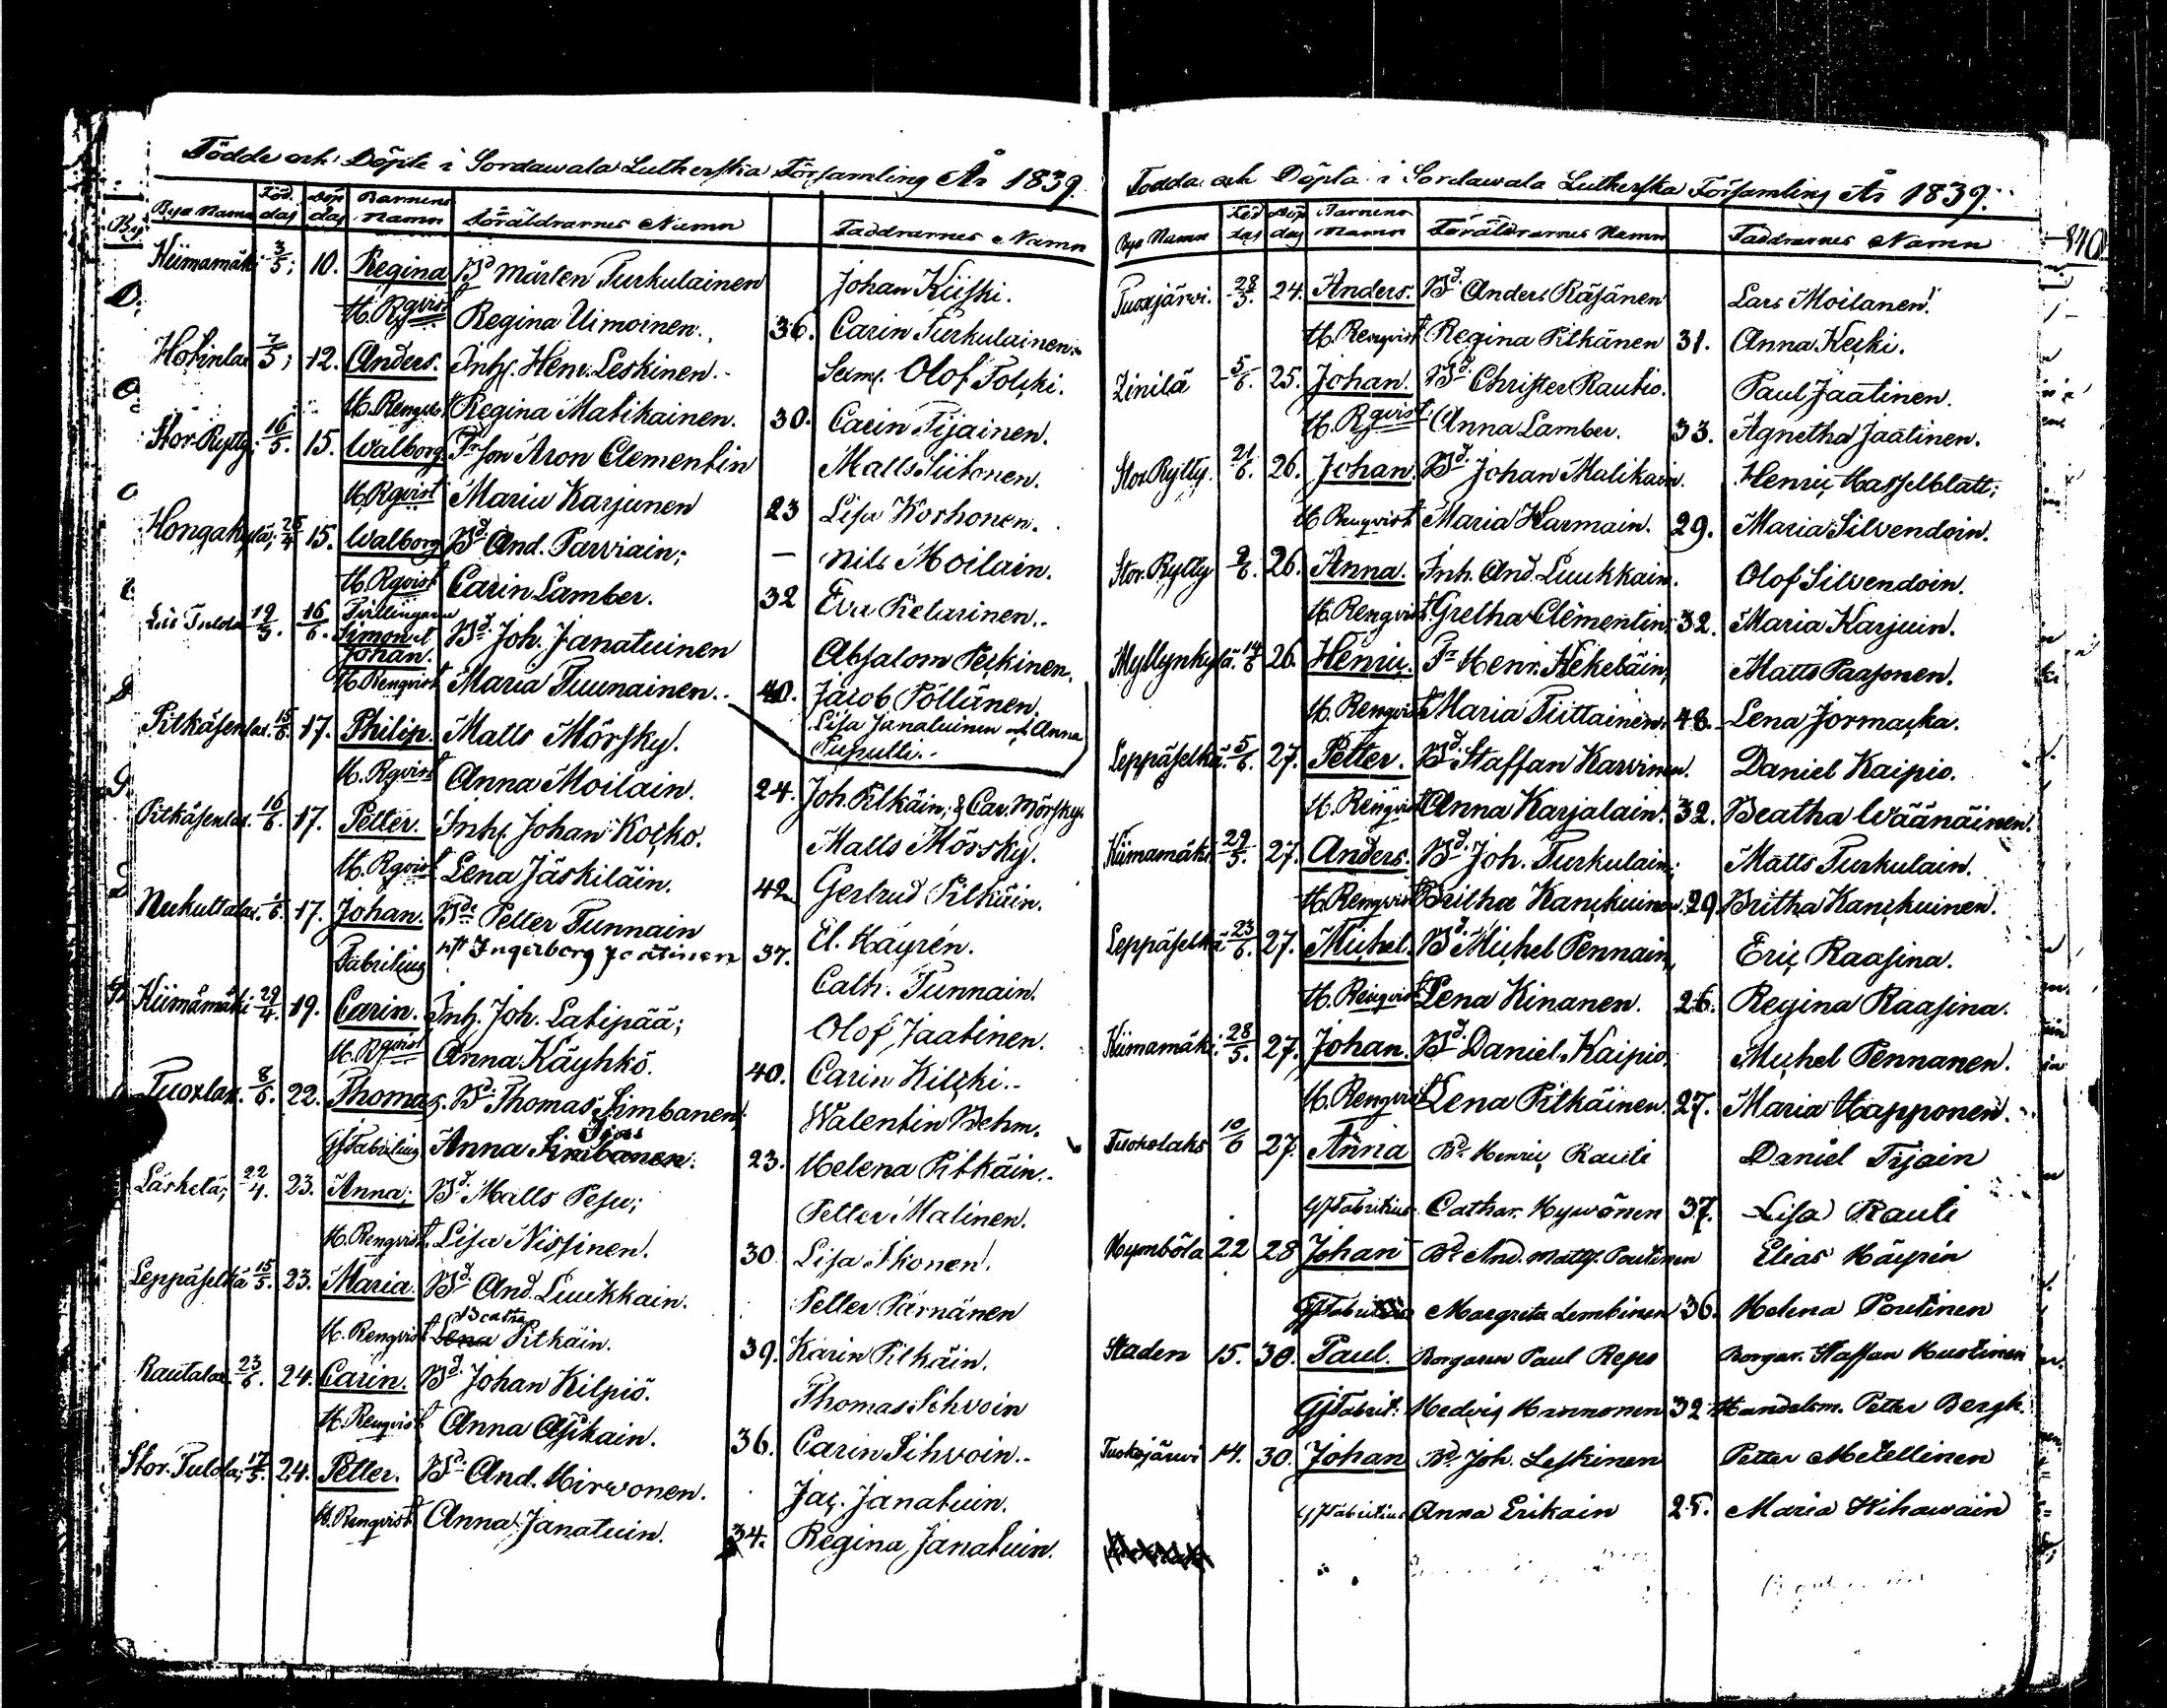 Födde och Döpte i Sordawala Lutherska Församling År 1839.
Bye Namn Föd. dag Döp dag Barnens Namn Föräldrarnes Namn Faddrarnes Namn
Kiimamäki 3/5; 10. Regina Bd Mårten Turkulainen Johan Kiiski.
H. Rqvist Regina Uimoinen. 36. Carin Turkulainen.
Hotinlax 7/5; 12. Anders. Inhs. Henr. Leskinen. Olof Tolski.
H. Renqvist Regina Matikainen. 30. Carin Tijainen.
Stor-Rytty; 16/5. 15. Walborg Fr Aron Clementin Matts Siitonen.
H. Rqvist Maria Karjunen 23 Lisa Korhonen.
Hongakylä; 25/4 15. Walborg Bd And. Parviain; — Nils Moilain.
H. Rqvist Carin Lamber. 32 Eva Pietarinen.
Tulola 19/5. 16/6. Tvillingarne Simon et Johan. Bd Joh. Janatuinen Absalom Peskinen,
H. Renqvist Maria Tuunainen. 40. Jacob Pöllänen.
Lisa Janatuinen och Anna
Pupulti.
Pitkäsenlax. 15/6. 17. Philip. Matts Mörsky.
H. Rqvist Anna Moilain. 24. Joh. Pitkäin; & Car. Mörsky.
Pitkäsenlax. 16/6. 17. Petter. Inhs. Johan Kocko. Matts Mörsky.
H. Rqvist Lena Jäskiläin. 42. Gertrud Pitkäin.
Nukuttalax. 17. Johan. Bde Petter Tunnain El. Käyrén.
Fabritius Ingerborg Jaatinen 37. Cath. Tunnain.
Kiimämäki 29/4. 19. Carin. Inh. Joh. Latipää; Olof Jaatinen.
H. Rqvist Anna Käyhkö. 40. Carin Kilski.
Tuoxlax. 8/6. 22. Thomas. Bd Thomas Simbanen; Walentin Behm.
Gf Fabritius Anna Simbanen. 23. Helena Pitkäin.
Läskelä; 22/4. 23. Anna; Bd Matts Pesu; Petter Malinen.
H. Renqvist. Lisa Nissinen. 30 Lisa Ikonen.
Leppäselkä 15/5. 23. Maria. Bd And. Luukkain. Petter Pärnänen
H. Renqvist Lena Beatha Pitkäin. 39. Karin Pitkäin.
Rautalax. 23/6. 24. Carin. Bd Johan Kilpiö. Thomas Sihvoin
H. Renqvist Anna Asikain. 36. Carin Sihvoin.
Stor-Tulola; 17/5. 24. Petter. Bd And. Hirvonen. Jac. Janatuin.
H. Renqvist Anna Janatuin. 34. Regina Janatuin.
Födda och Döpta i Sordawala Lutherska Församling År 1839.
Bye Namn Föd dag Döp dag Barnens Namn Föräldrarnes Namn Faddrarnes Namn
28/5. 24. Anders. Bd Anders Räsänen Lars Moilanen.
H. Renqvist Regina Pitkänen 31. Anna Kecki.
5/6. 25. Johan. Bd Christer Rautio. Paul Jaatinen.
H. Rqvist Anna Lamber. 33. Agnetha Jaatinen.
Stor Rytty. 21/6. 26. Johan. Bd Johan Matikain. Henric Hasselblatt;
H. Renqvist Maria Harmain. 29. Maria Silvendoin.
Stor Rytty 9/6. 26. Anna. Inh. And. Luukkain. Olof Silvendoin.
H. Renqvist. Gretha Clementin; 32. Maria Karjuin.
Myllynkylä. 14/6 26. Henric. Fr Henr. Kekeläin, Matts Paasonen.
H. Renqvist Maria Tiittainen. 43. Lena Jormacka.
Leppäselkä. 5/6. 27. Petter. Bd Staffan Karvinen. Daniel Kaipio.
H. Renqvist Anna Karjalain. 32. Beatha Wäänäinen.
Kiimamäki 29/5. 27. Anders. Bd Joh. Turkulain; Matts Turkulain.
H. Renqvist Britha Kanckuinen. 29. Britha Kanckuinen.
Leppäselkä 23/6. 27. Michel. Bd Michel Pennain, Eric Raasina.
H. Renqvist Lena Kinanen. 26. Regina Raasina.
Kiimamäki. 28/5. 27. Johan. Bd Daniel Kaipio. Michel Pennanen.
H. Renqvist Lena Pitkäinen. 27. Maria Happonen.
Tuokolaks 10/6 27. Anna Bd Henric Rauti Daniel Tijain
Gf Fabritius. Cathar. Hywönen 37. Lisa Rauti
Hymböla 22 28 Johan Bd And. Matts. Poutinen Elias Käyrén
Gf Fabritius Margreta Lembinen 36. Helena Poutinen
Staden 15. 30. Paul. Borgaren Paul Reps Borgar. Staffan Hustinen
Gf Fabrit: Hedvig Hannonen 32. Handelsm. Petter Bergh.
Tuokojärwi 14. 30. Johan Bd Joh. Leskinen Petter Metellinen
Gf Fabritius Anna Erikain 25. Maria Hihawain